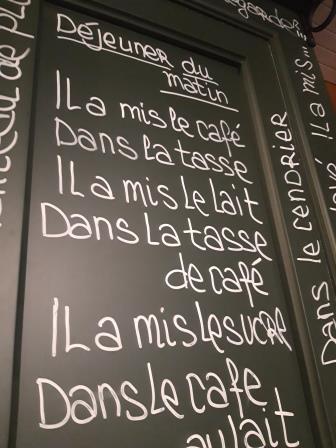 Déjeuner du
matin
Il a mis le café
Dans la tasse
Il a mis le lait
Dans la tasse
de café
Il a mis le sucre
Dans le cafe
au lait
Dans le CENDRIER
Il a mis